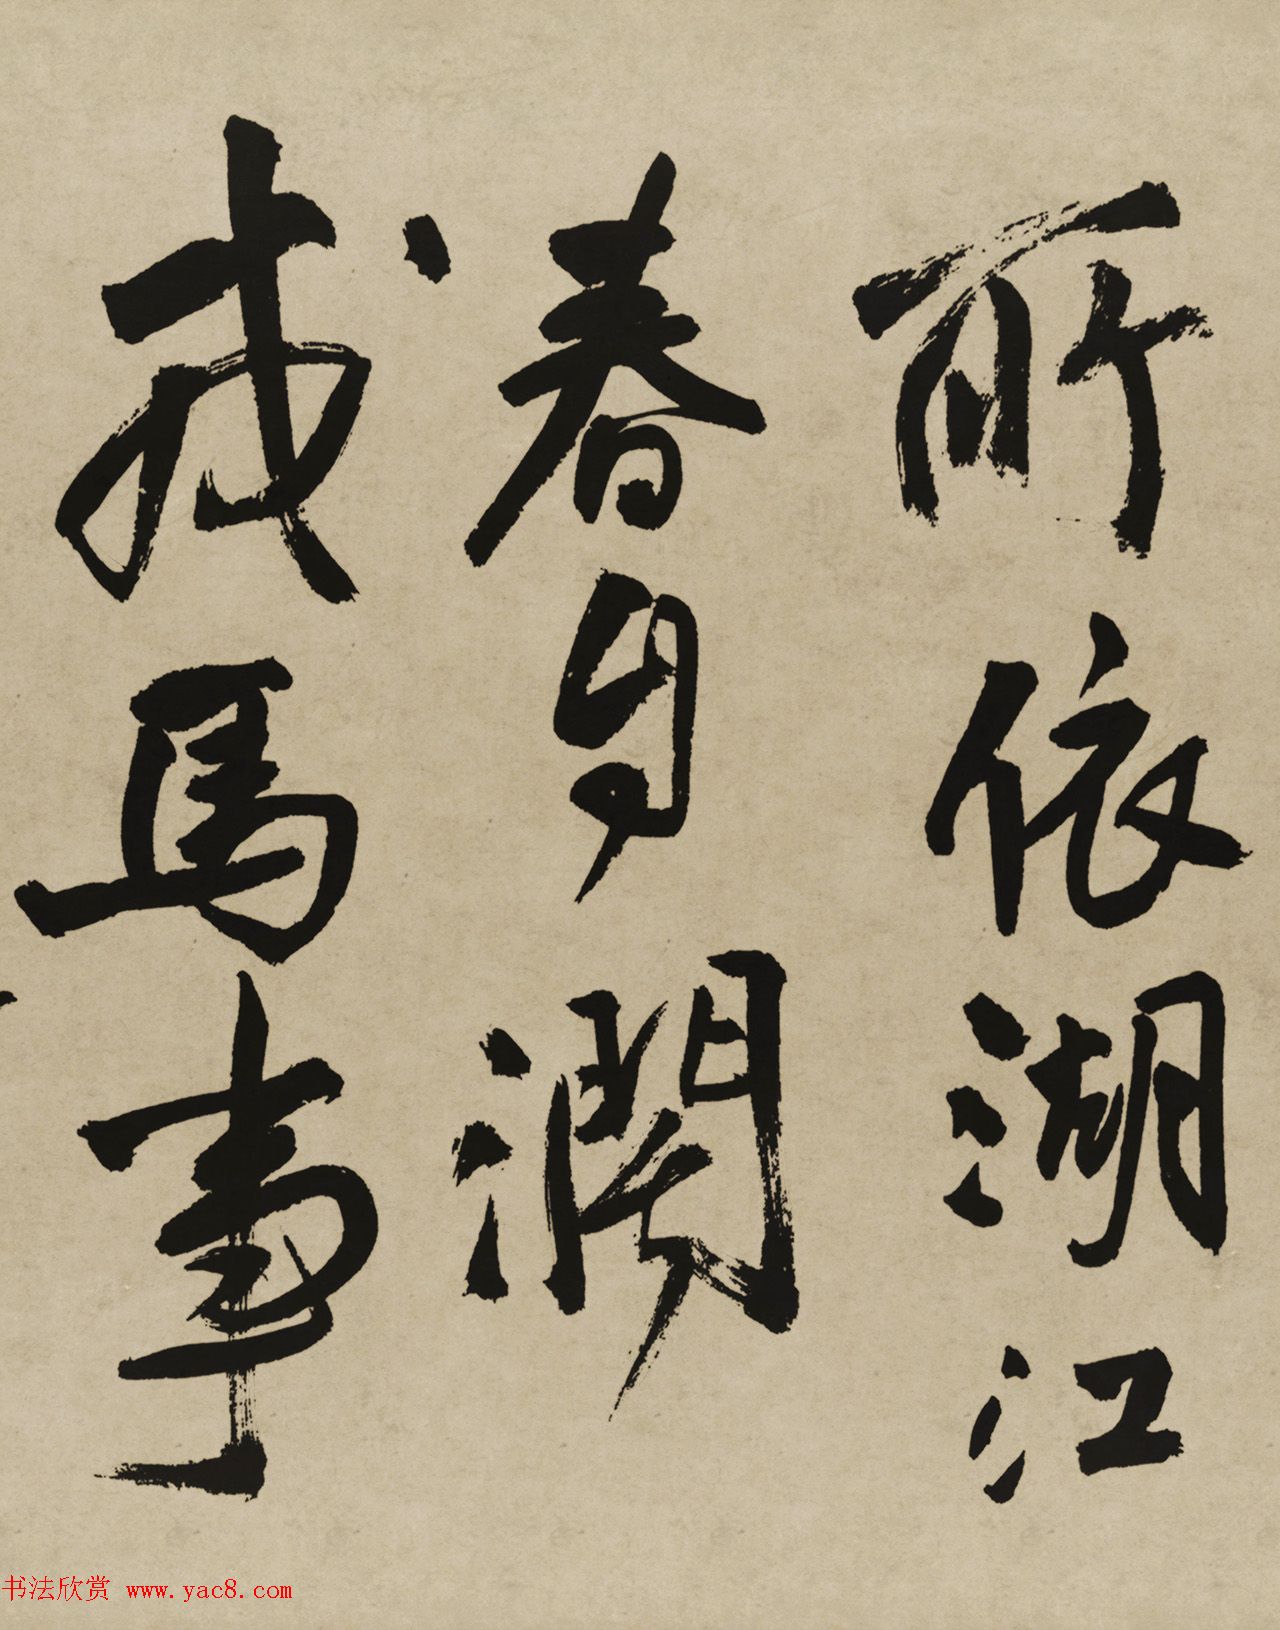 所依湖江
春自濶
戎馬事
书法欣赏 www.yac8.com